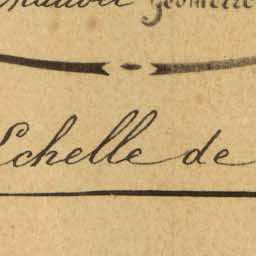 Géomètre
Echelle de